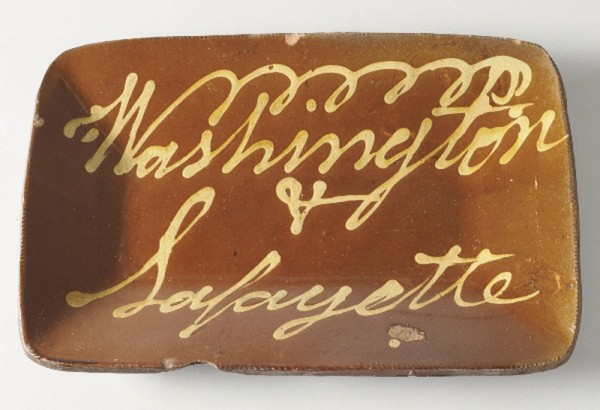 Washington
&
Lafayette